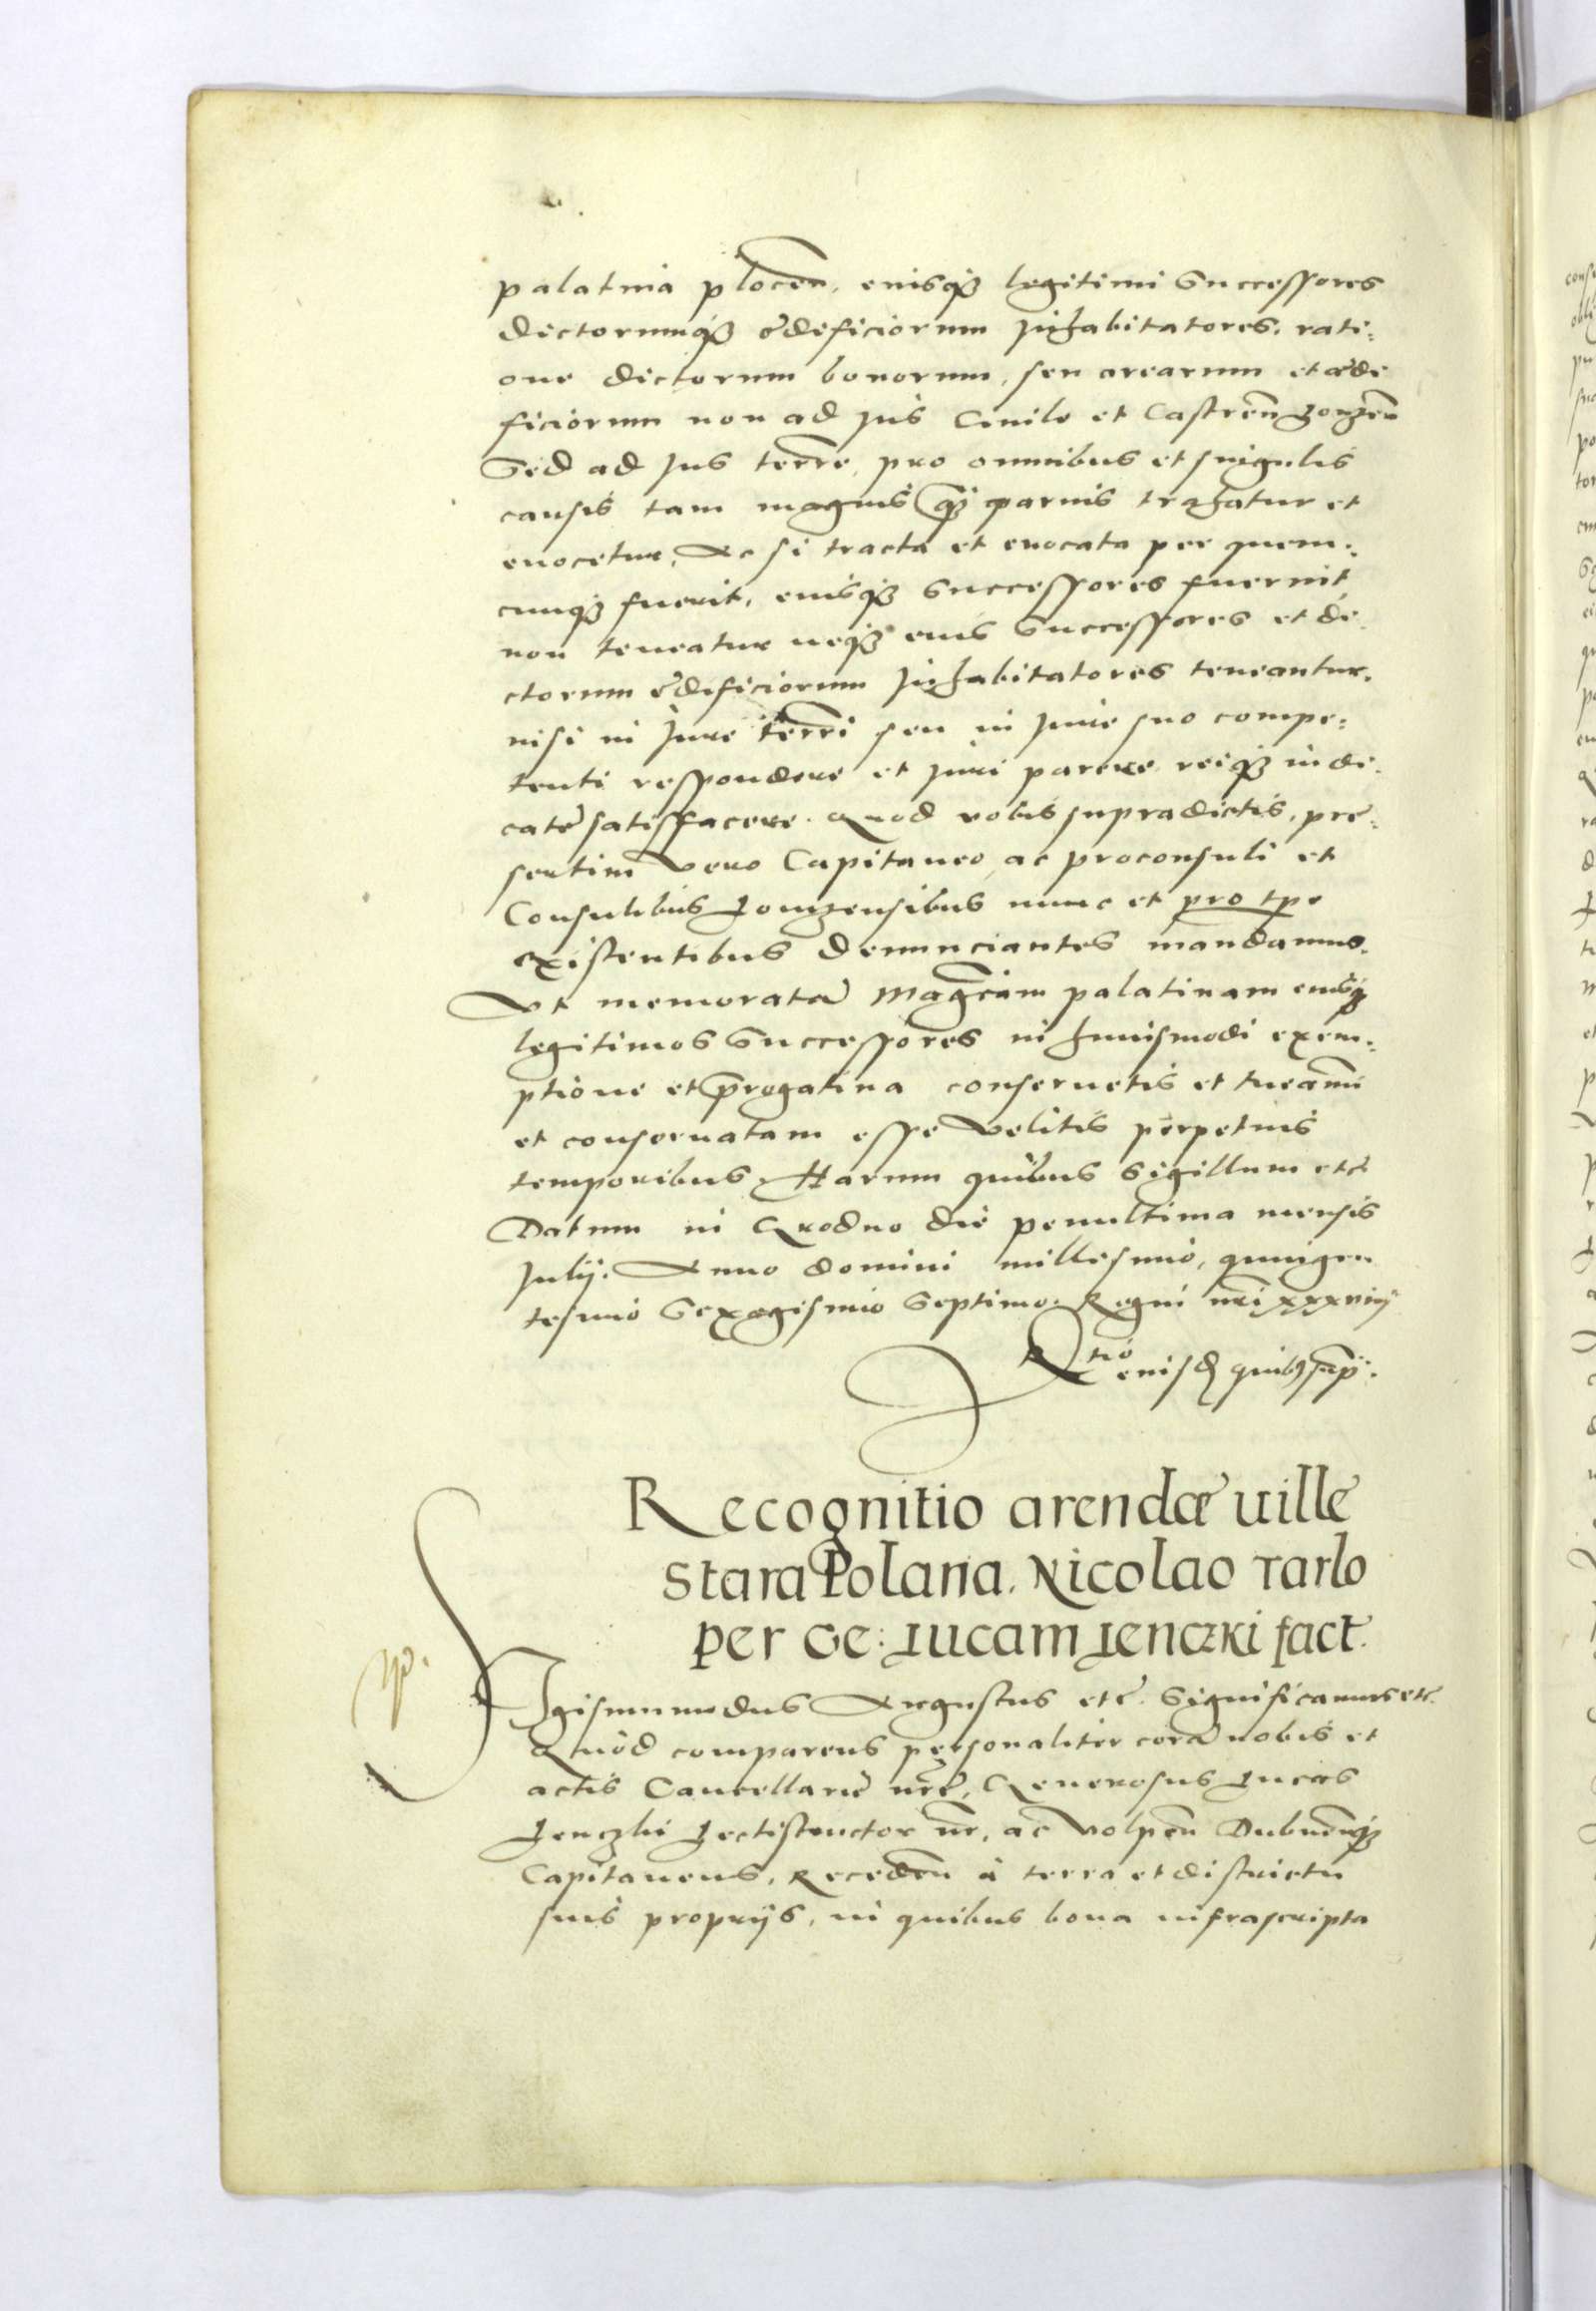 palatina plocen̄. eiusq̃ legitimi Successores
dictorumq̃ ędificiorum Inhabitatores. rati:
one dictorum bonorum, seu arearum et ædi
ficiorum non ad Jus Ciuile et Castren̄ Lomzen̄
Sed ad Jus terre, pro omnibus et singulis
causis tam magnis q̃ paruis trahatur et
euocetur, Ac si tracta et euocata per quem:
cunq̃ fuerit, eiusq̃ Successores fuerint
non teneatur neq̃ eius Successores et di
ctorum ędificiorum Inhabitatores teneantur.
nisi in Jure terrī seu in Jure suo compe:
tenti respondere et Juri parere. reiq̃ iudi:
catę satisfacere. Quod vobis supradictis, prę:
sertim vero Capitaneo, ac proconsuli et
Consulibus Lomzensibus nunc et pro tp̄e
existentibus denunciantes mandamus.
Vt memoratā Mag̃cam palatinam eiusq̃
legitimos Successores in huiusmodi exem:
ptione et p̃rogatiua conseruetis et tueamī
et conseruatam esse velitis perpetuis
temporibus Harum quibus Sigillum etc̄
Datum in Grodno die penultima mensis
Julij. Anno domini millesimo, quingen
tesimo Sexagesimo Septimo. Regni nr̄i xxxviij
R̃tio eiusd̃ quib9 sup̃.
Recognitio arendæ uillę
Stara Polana. Nicolao Tarlo
per Ge: Lucam Lenczki fact.
Sigismundus Augustus etc̄. Significamus etc.
Quod comparens personaliter corā nobis et
actis Cancellarię nrę, Generosus Lucas
Lenczki Lectistructor nr̄, ac Volpen̄ Dubnen̄q̃
Capitaneus, Receden̄ à terra et districtu
suis proprijs, in quibus bona infrascripta